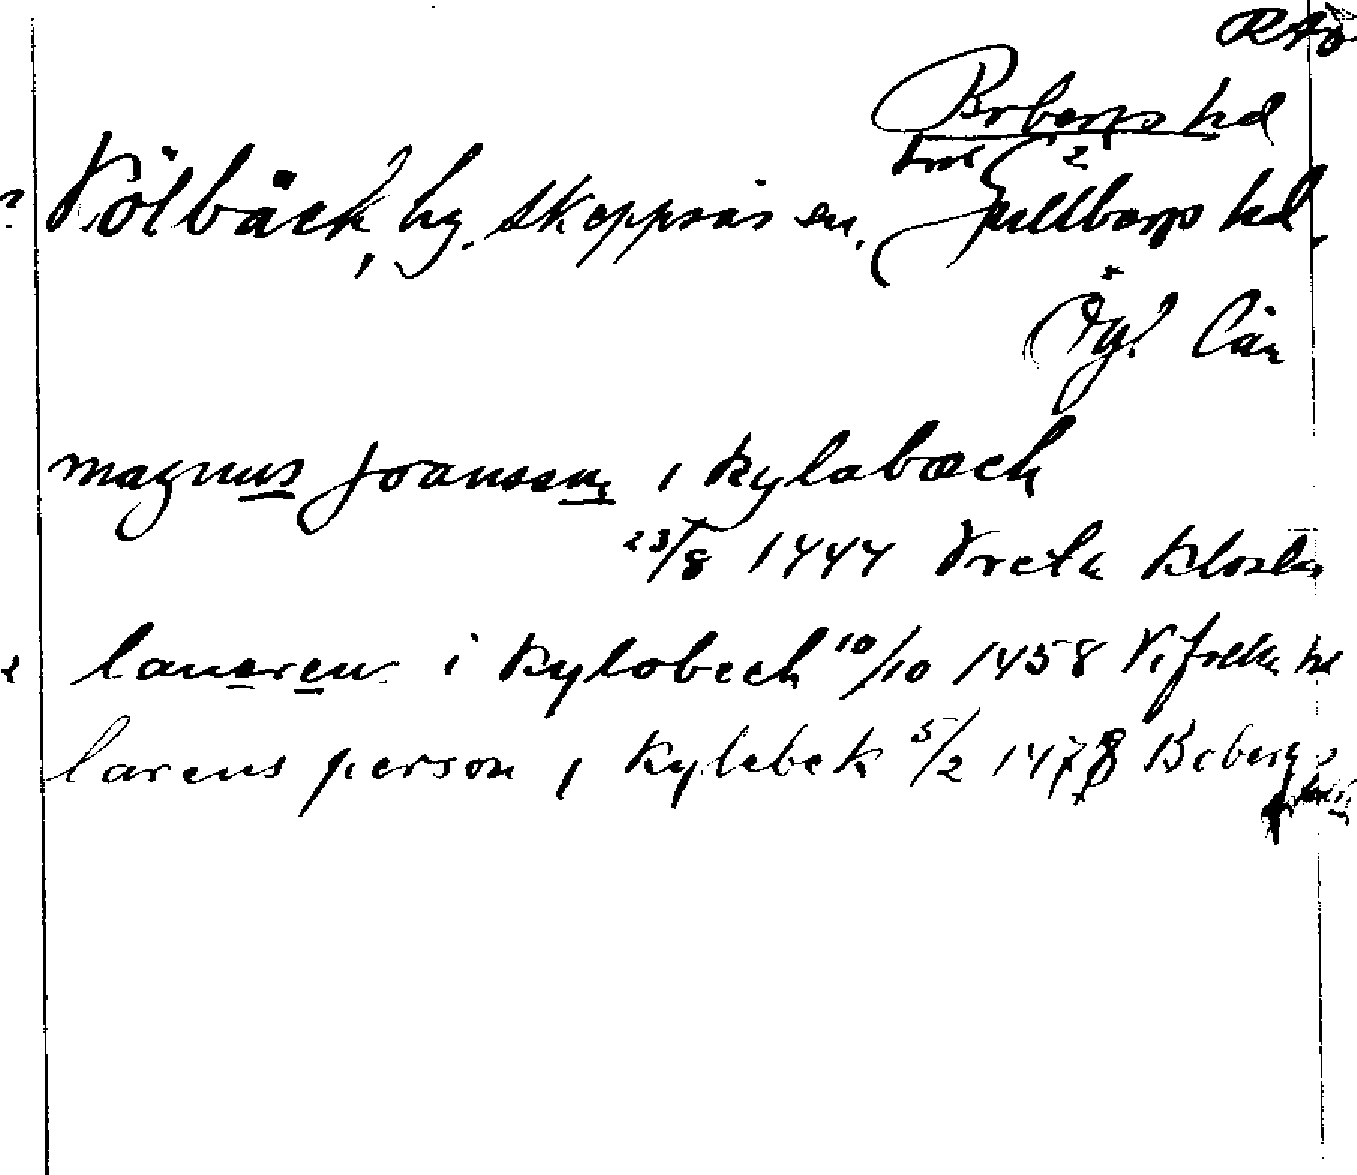 RAÖ
Bobergs hd
förr 2
Kölbäck, by. Skeppsås sn. Gullbergs hd.
Ögl län
magnus joansson i kylabæck
23/8 1444 Vreta kloster
laurens i kylobeck 10/10 1458 Vifolka hd
larens person i kylebek 5/2 1478 Bobergs